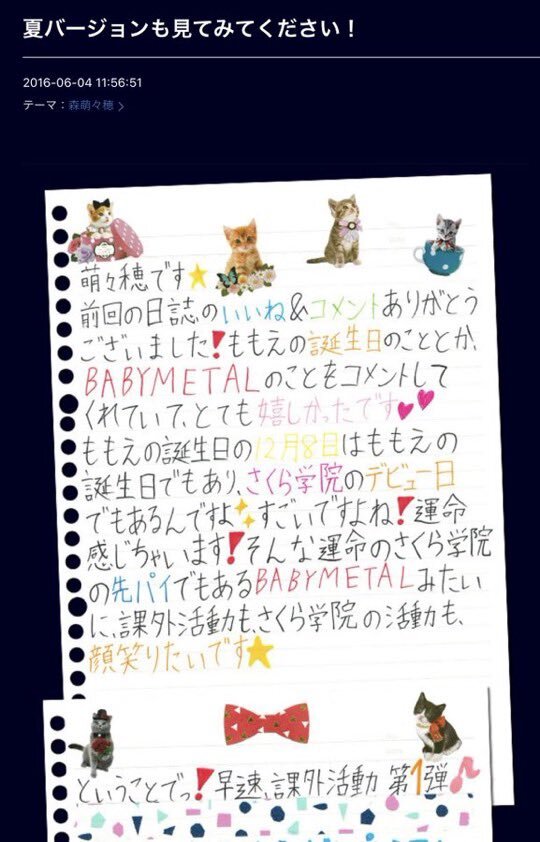 夏バージョンも見てみてください！
2016-06-04 11:56:51
テーマ：森萌々穂 >
萌々穂です⭐
前回の日誌のいいね&コメントありがとう
ございました❗ももえの誕生日のこととか、
BABYMETALのことをコメントして
くれていて、とても嬉しかったです♥♥
ももえの誕生日の12月8日はももえの
誕生日でもあり、さくら学院のデビュー日
でもあるんですよ✨すごいですよね❗運命
感じちゃいます❗そんな運命のさくら学院
の先パイでもあるBABYMETALみたい
に、課外活動も、さくら学院の活動も、
顔笑りたいです⭐
ということでっ❗早速、課外活動 第1弾🎵